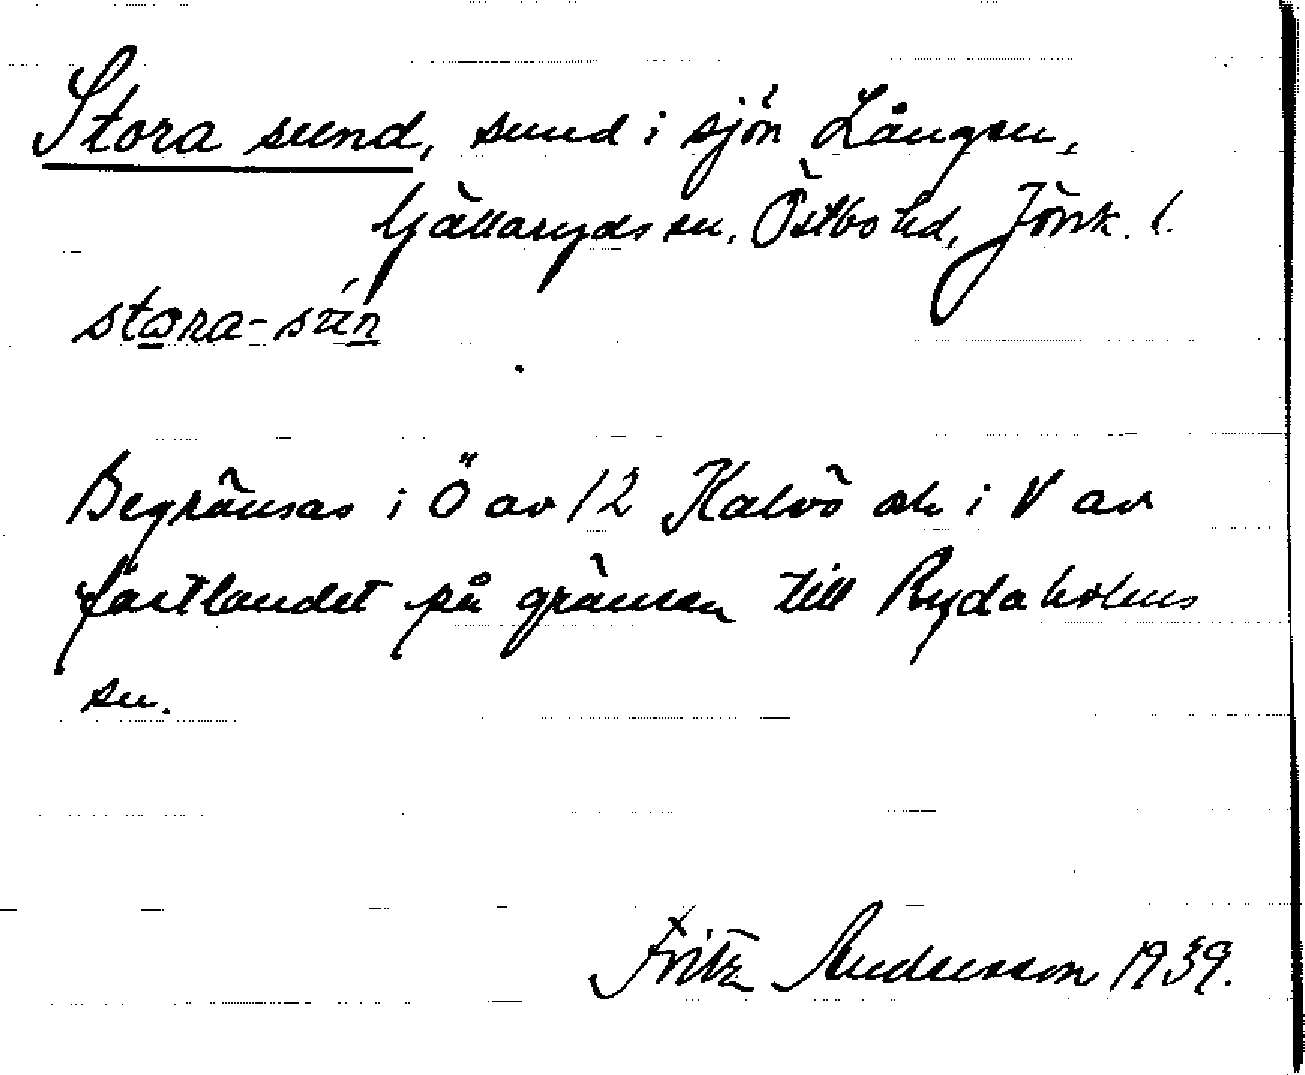 Stora sund, sund i sjön Lången,
Gällaryds sn, Östbo hd, Jönk. l.
stora-sún
Begränsas i Ö av 12 Kalvö och i V av
fastlandet på gränsen till Rydaholms
sn.
Fritz Andersson 1939.